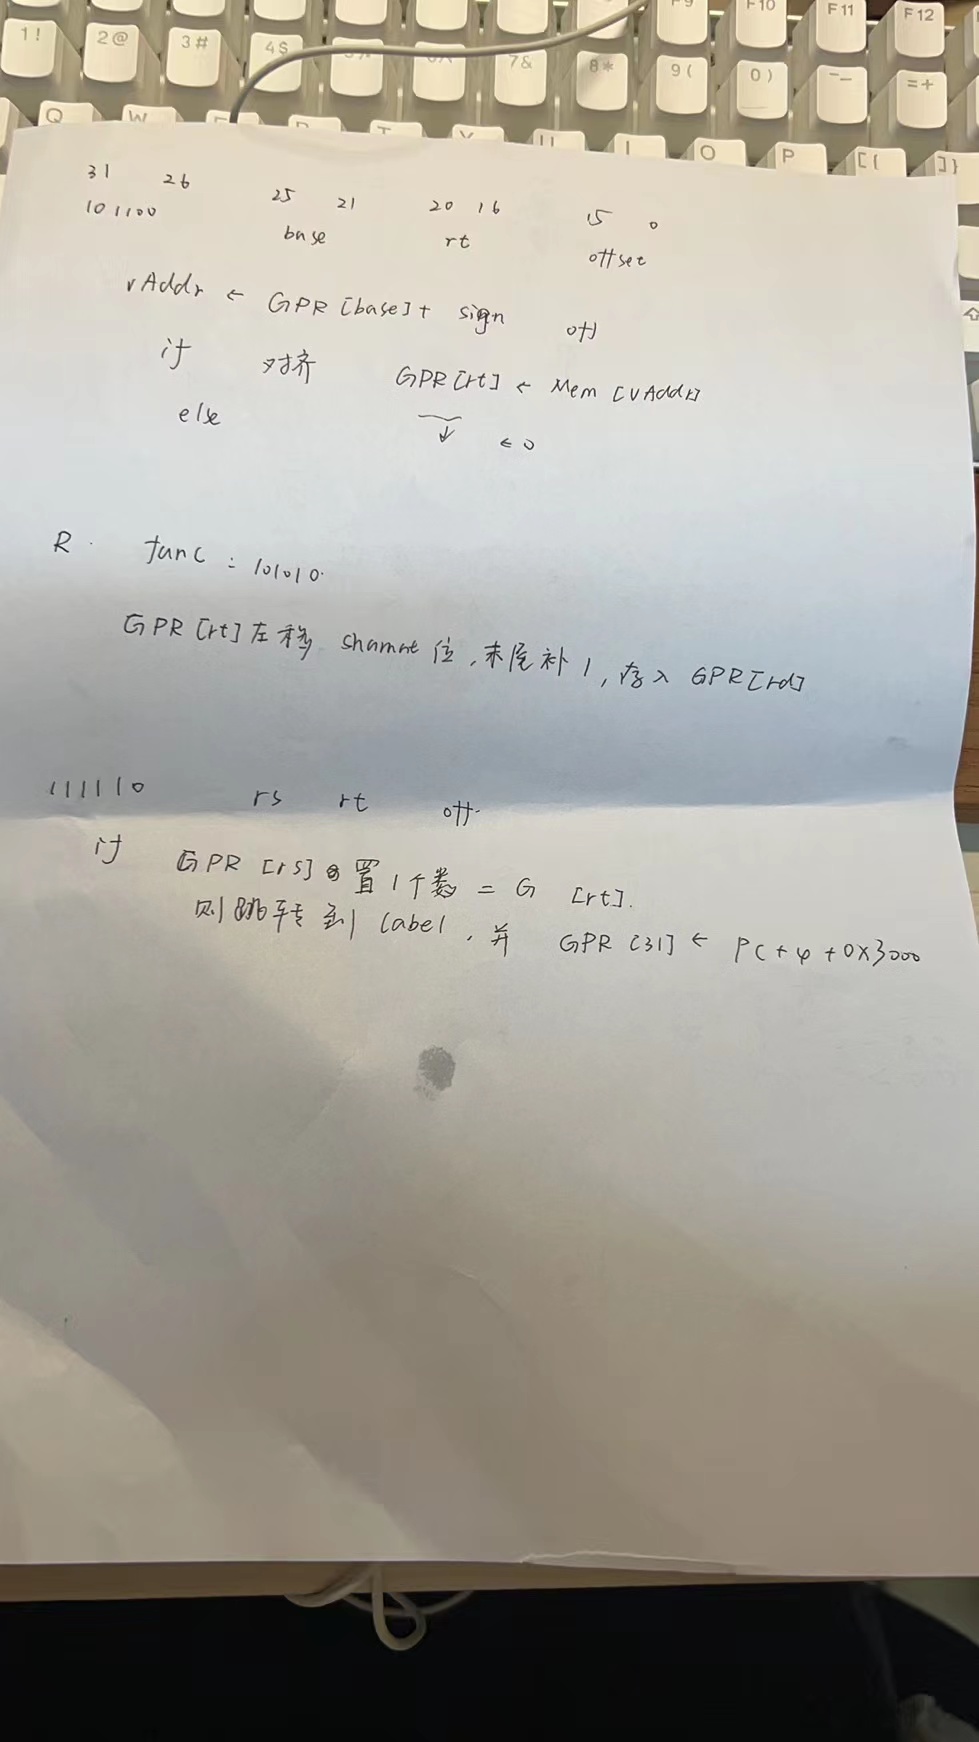 F9 F10 F11 F12
1! 2@ 3# 4$ 7& 8* 9( 0) -- =+
Q W O P [{ ]}
31 26 25 21 20 16 15 0
101100 base rt offset
vAddr ← GPR[base]+ sign off
if 对齐 GPR[rt] ← Mem [vAddr]
else ↓ ← 0
R. func : 101010.
GPR[rt]左移 shamt 位,末尾补1,存入 GPR[rd]
111110 rs rt off.
if GPR [rs] 置1个数 = G [rt].
则跳转到 label, 并 GPR [31] ← PC+4+0x3000